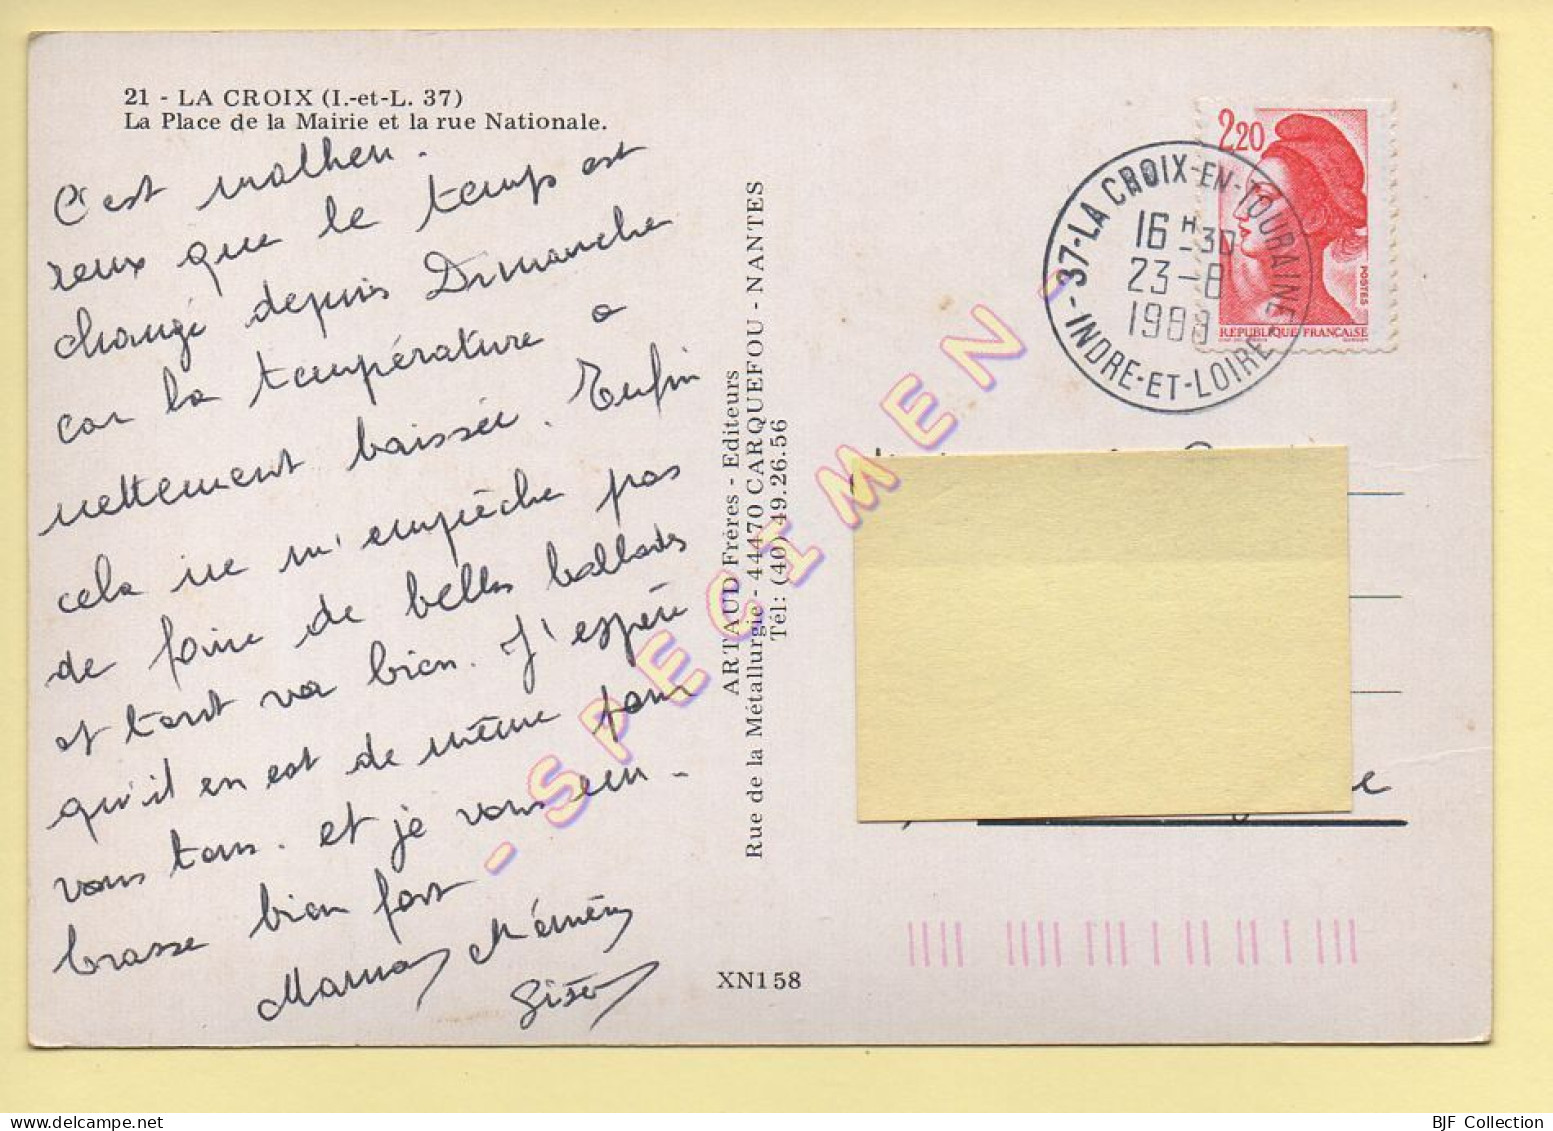 21 - LA CROIX (I.-et-L. 37)
La Place de la Mairie et la rue Nationale.
C'est malheu-
reux que le temps est
changé depuis Dimanche
car la température a
nettement baissée. Enfin
cela ne m'empêche pas
de faire de belles ballades
et tout va bien. J'espère
qu'il en est de même pour
vous tous. et je vous em-
brasse bien fort
Mémère
ARTAUD Frères - Editeurs
Rue de la Métallurgie - 44470 CARQUEFOU - NANTES
Tél: (40) 49.26.56
XN158
- SPECIMEN -
2,20
POSTES
REPUBLIQUE FRANÇAISE
37-LA CROIX-EN-TOURAINE
16 H 30
23-8
1988
INDRE-ET-LOIRE
BJF Collection